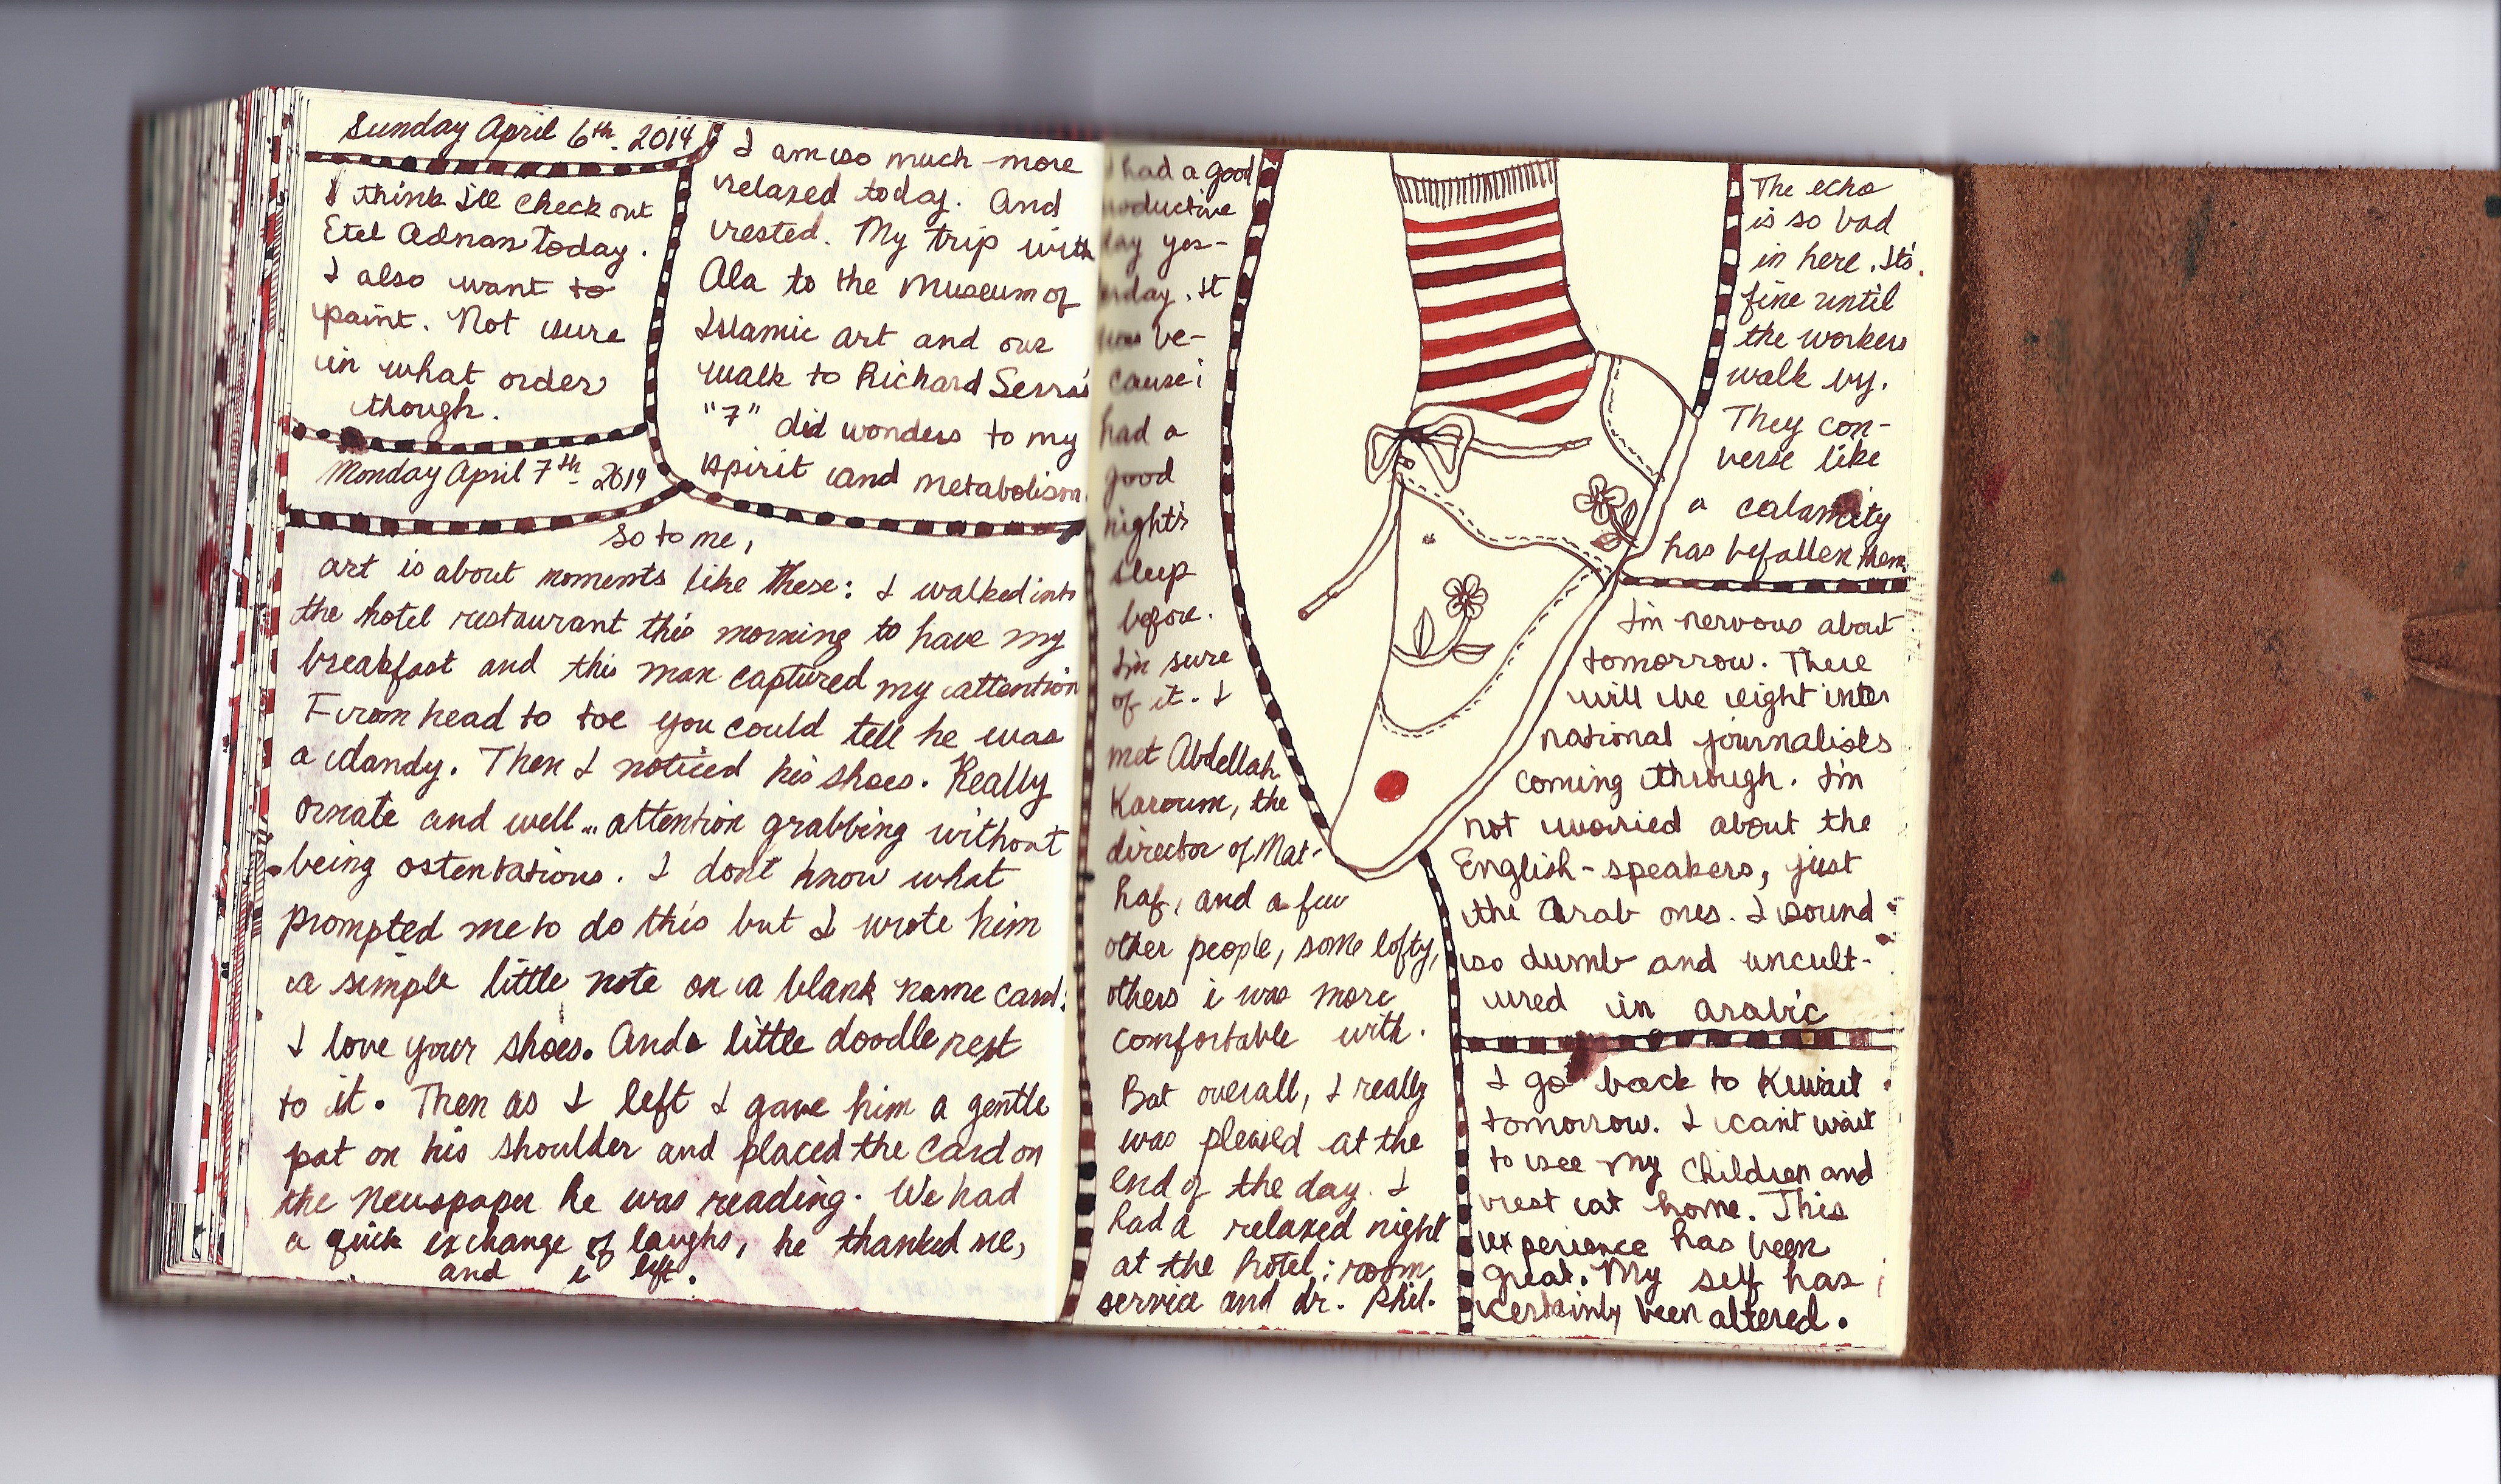 Sunday April 6th. 2014
I think I'll check out
Etel Adnan today.
I also want to
paint. Not sure
in what order
though.
I am so much more
relaxed today. And
rested. My trip with
Ala to the Museum of
Islamic art and our
walk to Richard Serra's
"7" did wonders to my
spirit and metabolism.
Monday April 7th 2014
So to me,
art is about moments like these: I walked into
the hotel restaurant this morning to have my
breakfast and this man captured my attention
From head to toe you could tell he was
a dandy. Then I noticed his shoes. Really
ornate and well... attention grabbing without
being ostentatious. I don't know what
prompted me to do this but I wrote him
a simple little note on a blank name card:
I love your shoes. And a little doodle next
to it. Then as I left I gave him a gentle
pat on his shoulder and placed the card on
the newspaper he was reading. We had
a quick exchange of laughs, he thanked me,
and i left.
I had a good
productive
day yes-
erday. It
was be-
cause i
had a
good
night's
sleep
before.
I'm sure
of it. I
met Abdellah
Karoum, the
director of Mat-
haf, and a few
other people, some lofty,
others i was more
comfortable with.
But overall, I really
was pleased at the
end of the day. I
had a relaxed night
at the hotel: room
service and dr. Phil.
The echo
is so bad
in here. It's
fine until
the workers
walk by.
They con-
verse like
a calamity
has befallen them.
I'm nervous about
tomorrow. There
will be eight inter
national journalists
coming through. I'm
not worried about the
English-speakers, just
the Arab ones. I sound
so dumb and uncult-
ured in arabic
I go back to Kuwait
tomorrow. I can't wait
to see my children and
rest at home. This
experience has been
great. My self has
certainly been altered.